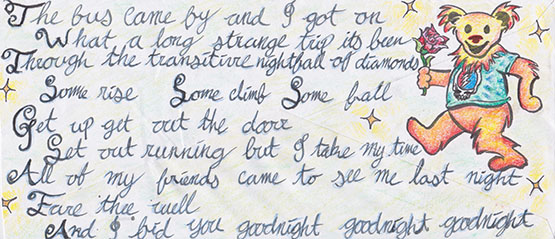 The bus came by and I got on
What a long strange trip its been
Through the transitive nightfall of diamonds
Some rise Some climb Some fall
Get up get out the door
Set out running but I take my time
All of my friends came to see me last night
Fare thee well
And I bid you goodnight goodnight goodnight